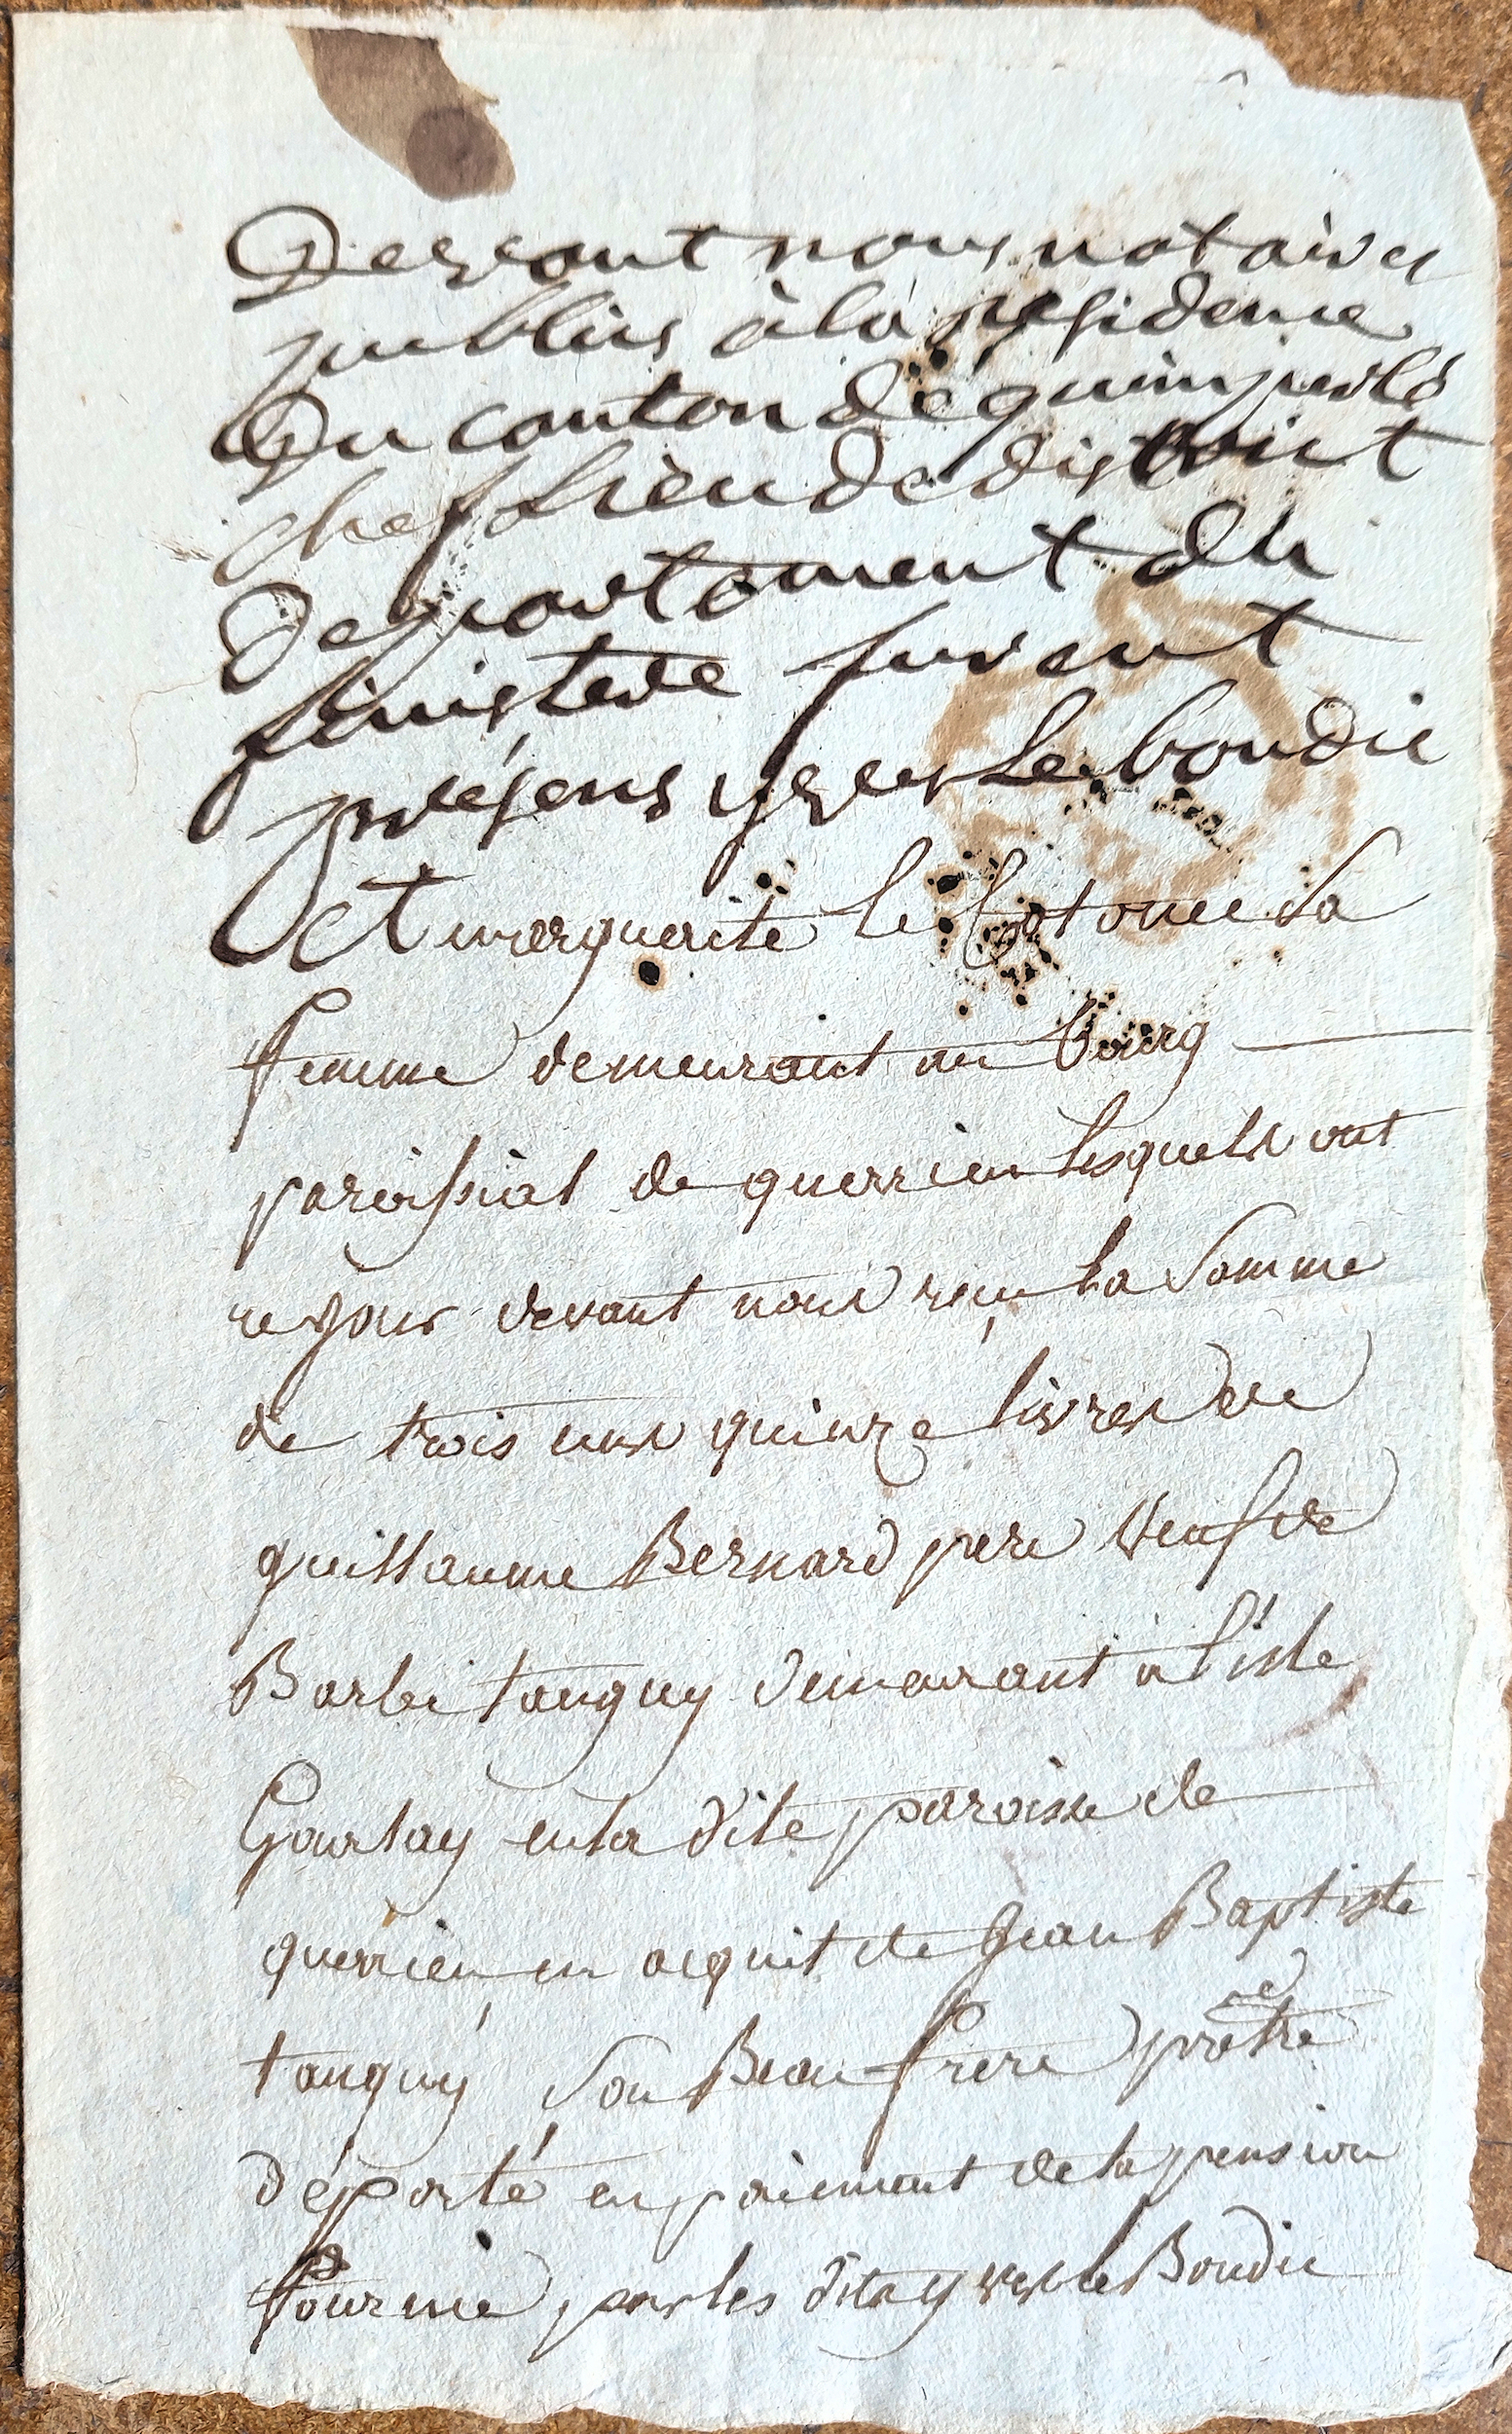 Devant nous notaires
publics à la residence
Du canton de quimperlé
chef lieu de district
Departement du
finistere furent
présens yves Le boudic
Et marguerite le sa
femme demeurant au bourg
paroissial de querrien lesquels ont
ce jour devant nous reçu la somme
de trois cens quinze livres de
guillaume Bernard pere veuf de
Barbe tanguy demeurant à l'isle
Gourlay en la dite paroisse de
querrien en acquit de Jean Baptiste
tanguy son Beau frere prêtre
déporté en paiement de la pension
fournie par les dits yves le Boudic